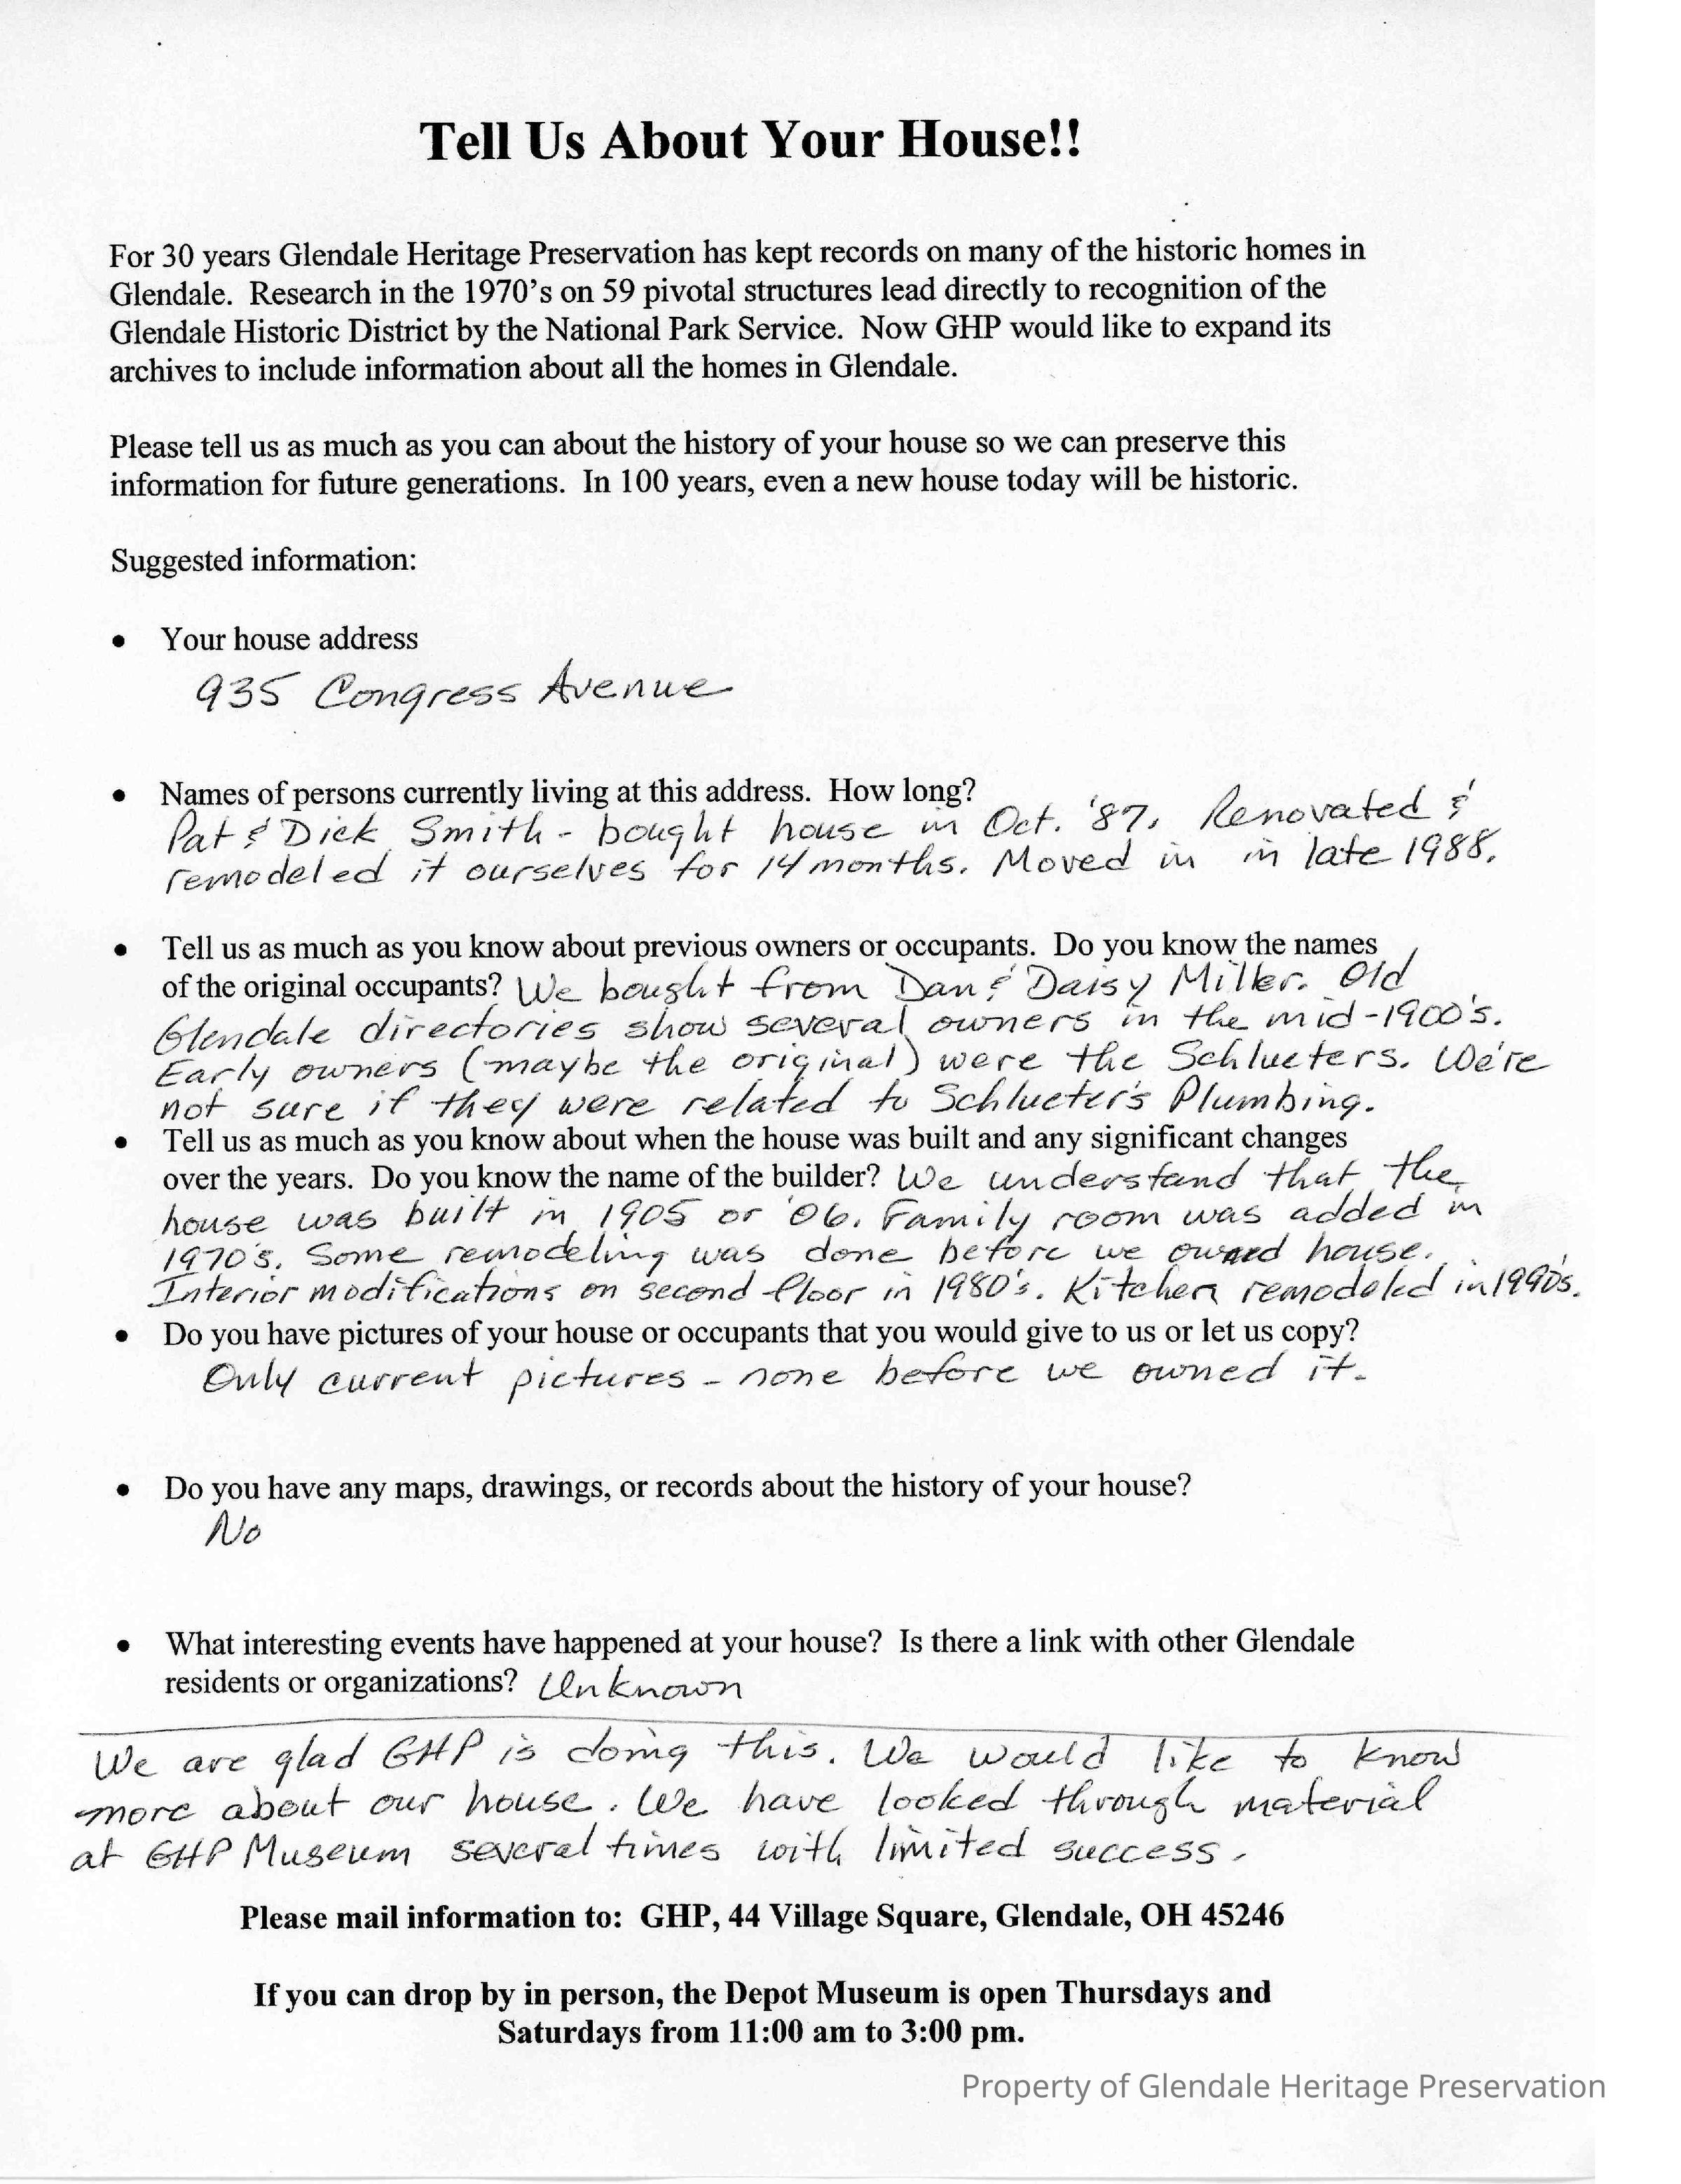 Tell Us About Your House!!
For 30 years Glendale Heritage Preservation has kept records on many of the historic homes in
Glendale. Research in the 1970's on 59 pivotal structures lead directly to recognition of the
Glendale Historic District by the National Park Service. Now GHP would like to expand its
archives to include information about all the homes in Glendale.
Please tell us as much as you can about the history of your house so we can preserve this
information for future generations. In 100 years, even a new house today will be historic.
Suggested information:
• Your house address
935 Congress Avenue
• Names of persons currently living at this address. How long?
Pat & Dick Smith - bought house in Oct. '87. Renovated &
remodeled it ourselves for 14 months. Moved in in late 1988.
• Tell us as much as you know about previous owners or occupants. Do you know the names
of the original occupants? We bought from Dan & Daisy Miller. Old
Glendale directories show several owners in the mid-1900's.
Early owners (maybe the original) were the Schlueters. We're
not sure if they were related to Schlueter's Plumbing.
• Tell us as much as you know about when the house was built and any significant changes
over the years. Do you know the name of the builder? We understand that the
house was built in 1905 or '06. Family room was added in
1970's. Some remodeling was done before we owned house.
Interior modifications on second floor in 1980's. Kitchen remodeled in 1990's.
• Do you have pictures of your house or occupants that you would give to us or let us copy?
Only current pictures - none before we owned it.
• Do you have any maps, drawings, or records about the history of your house?
No
• What interesting events have happened at your house? Is there a link with other Glendale
residents or organizations? Unknown
We are glad GHP is doing this. We would like to know
more about our house. We have looked through material
at GHP Museum several times with limited success.
Please mail information to: GHP, 44 Village Square, Glendale, OH 45246
If you can drop by in person, the Depot Museum is open Thursdays and
Saturdays from 11:00 am to 3:00 pm.
Property of Glendale Heritage Preservation